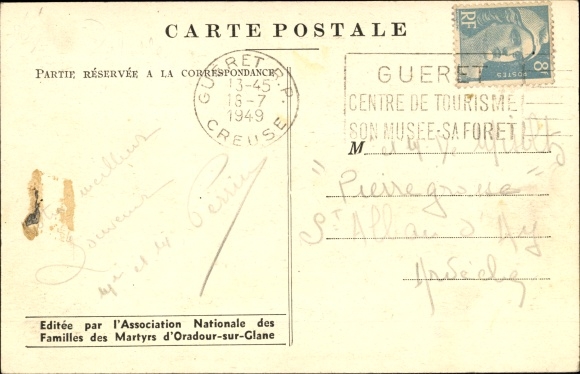 CARTE POSTALE
PARTIE RÉSERVÉE A LA CORRESPONDANCE
GUERET R.P.
13-45
16-7
1949
CREUSE
RF
8F
POSTES
GUERET
CENTRE DE TOURISME
SON MUSÉE-SA FORET
meilleur
Souvenir
Mr et Me Perrin
M
et Me
"Pierregrosse"
St Alban d'Ay
Ardèche
Editée par l'Association Nationale des
Familles des Martyrs d'Oradour-sur-Glane